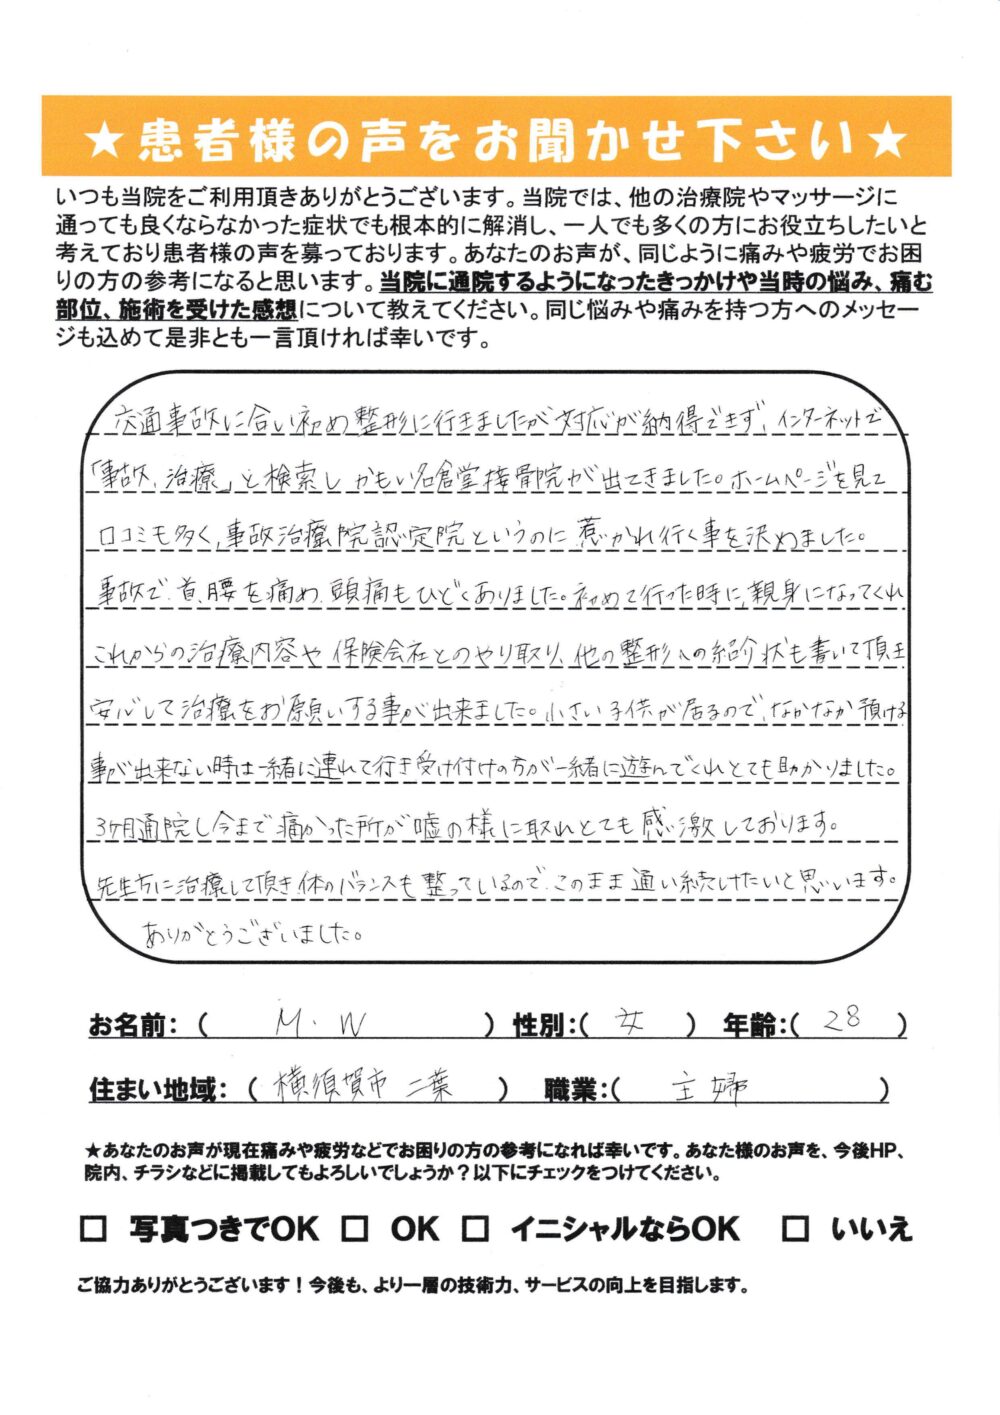 ★患者様の声をお聞かせ下さい★
いつも当院をご利用頂きありがとうございます。当院では、他の治療院やマッサージに
通っても良くならなかった症状でも根本的に解消し、一人でも多くの方にお役立ちしたいと
考えており患者様の声を募っております。あなたのお声が、同じように痛みや疲労でお困
りの方の参考になると思います。当院に通院するようになったきっかけや当時の悩み、痛む
部位、施術を受けた感想について教えてください。同じ悩みや痛みを持つ方へのメッセー
ジも込めて是非とも一言頂ければ幸いです。
交通事故に合い初め整形に行きましたが対応が納得できず、インターネットで
「事故、治療」と検索しかもい名倉堂接骨院が出てきました。ホームページを見て
口コミも多く、事故治療院認定院というのに惹かれ行く事を決めました。
事故で、首、腰を痛め、頭痛もひどくありました。初めて行った時に、親身になってくれ
これからの治療内容や保険会社とのやり取り、他の整形への紹介状も書いて頂き
安心して治療をお願いする事が出来ました。小さい子供が居るので、なかなか預ける
事が出来ない時は一緒に連れて行き受け付けの方が一緒に遊んでくれとても助かりました。
3ヶ月通院し今まで痛かった所が嘘の様に取れとても感激しております。
先生方に治療して頂き体のバランスも整っているので、このまま通い続けたいと思います。
ありがとうございました。
お名前:( M.W ) 性別:( 女 ) 年齢:( 28 )
住まい地域:( 横須賀市 二葉 ) 職業:( 主婦 )
★あなたのお声が現在痛みや疲労などでお困りの方の参考になれば幸いです。あなた様のお声を、今後HP、
院内、チラシなどに掲載してもよろしいでしょうか?以下にチェックをつけてください。
□ 写真つきでOK □ OK □ イニシャルならOK □ いいえ
ご協力ありがとうございます!今後も、より一層の技術力、サービスの向上を目指します。